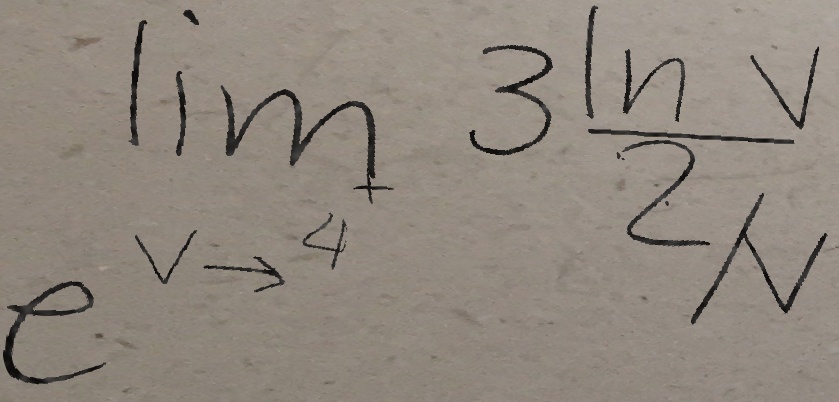 e^{\lim_{v \to 4^+} 3 \frac{\ln v}{2/v}}